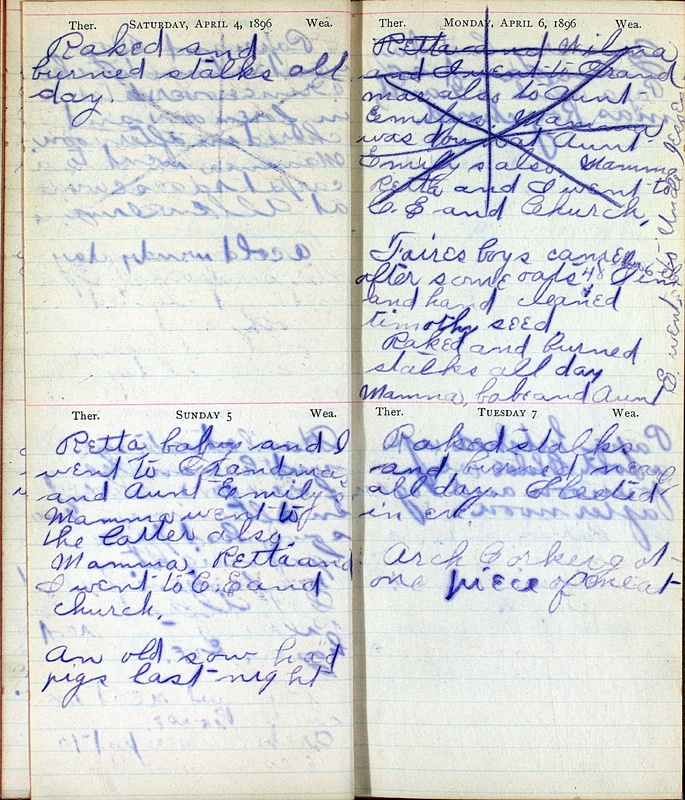 Ther. SATURDAY, APRIL 4, 1896 Wea.
Raked and
burned stalks all
day.
a cold windy day
Ther. SUNDAY 5 Wea.
Retta baby and I
went to Grandma's
and Aunt Emily's
Mamma went to
the latter also.
Mamma, Retta and
I went to C.E. and
church.
An old sow had
pigs last night
Ther. MONDAY, APRIL 6, 1896 Wea.
Retta and Wilma
and I went to Grand
ma's also to Aunt
Emily's. Mamma
was down at Aunt
Emily's also. Mamma
Retta and I went to
C.E. and Church,
Faires boys came
after some oats 48
and hand cleaned
timothy seed
Raked and burned
stalks all day
Mamma, babe and Aunt
E. went to Uncle Jesse's
Ther. TUESDAY 7 Wea.
Raked stalks
and burned
all day. Sleeted
in
Arch
one piece of meat